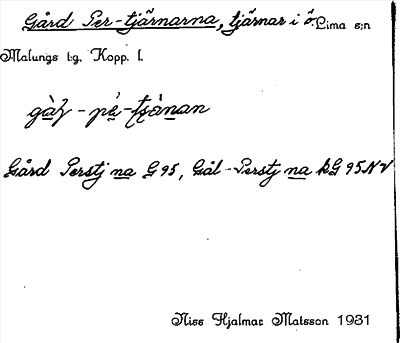 Gård Per-tjärnarna, tjärnar i ö. Lima s:n
Malungs t:g. Kopp. l.
gàɫ - pè - tjànan
Gård Perstj na G 95, Gål-Perstj na kG 95 NV
Niss Hjalmar Matsson 1931